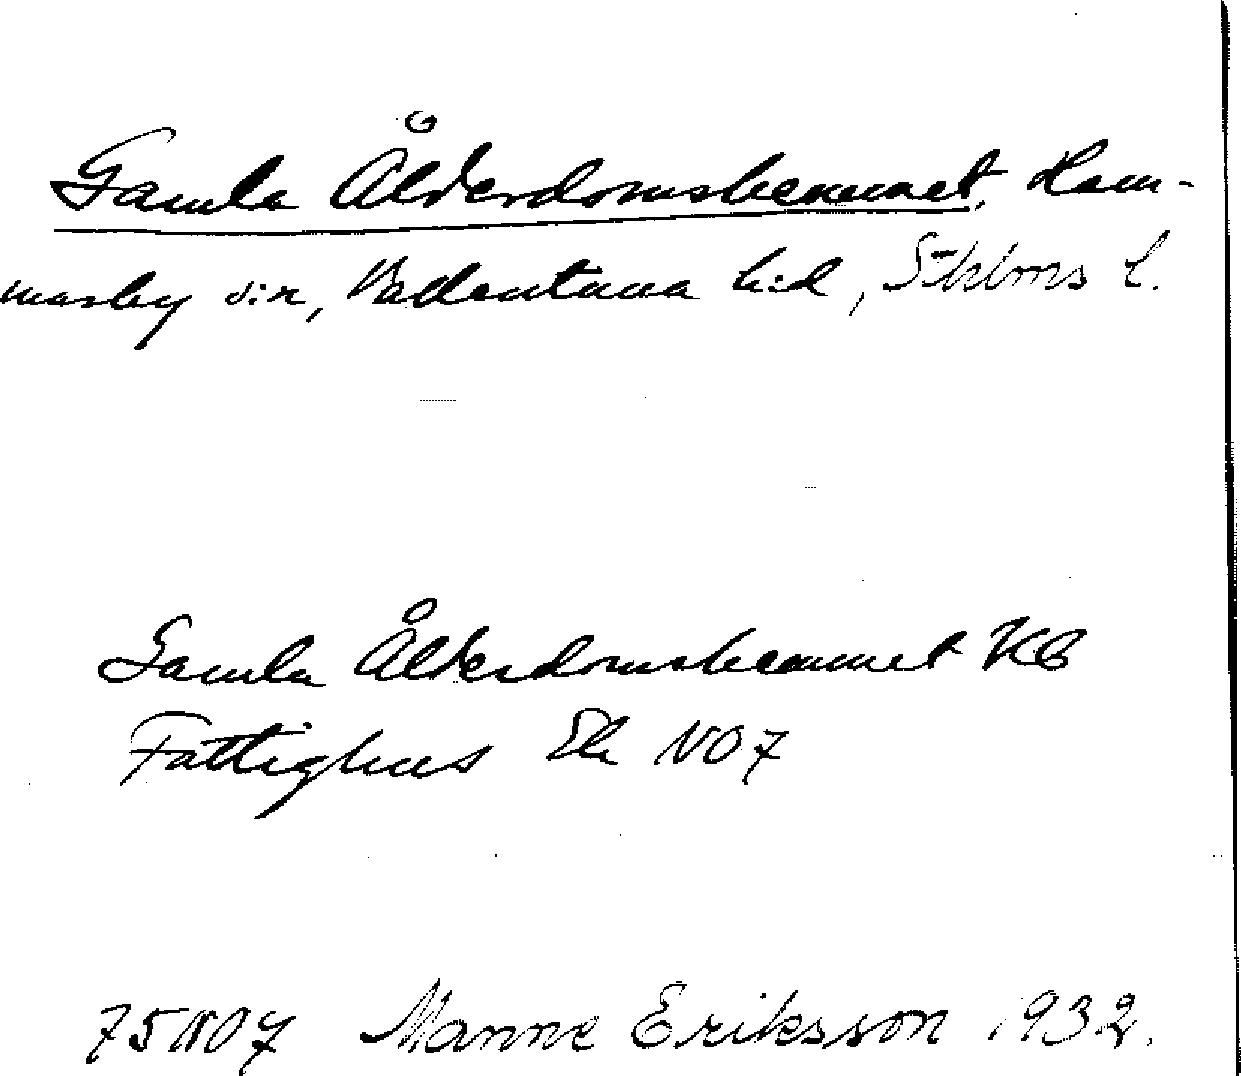 Gamla Ålderdomshemmet, Ham-
marby s:n, Vallentuna h:d, Sthlms l.
Gamla Ålderdomshemmet KB
Fattighus Ek NO7
75NO7 Manne Eriksson 1932.